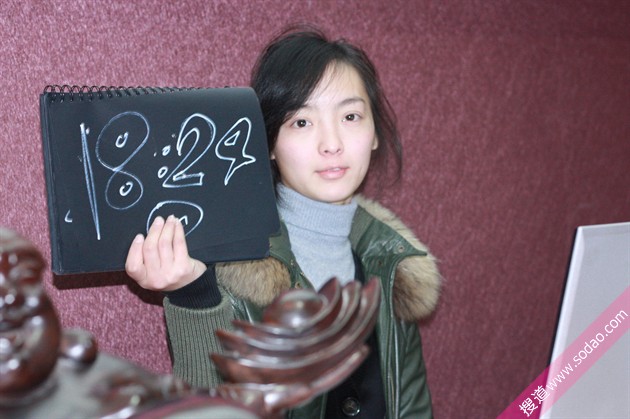 18:24
搜道www.sodao.com